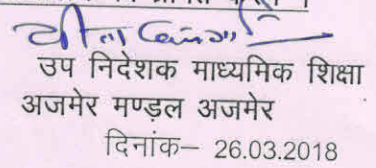 उप निदेशक माध्यमिक शिक्षा
अजमेर मण्डल अजमेर
दिनांक– 26.03.2018